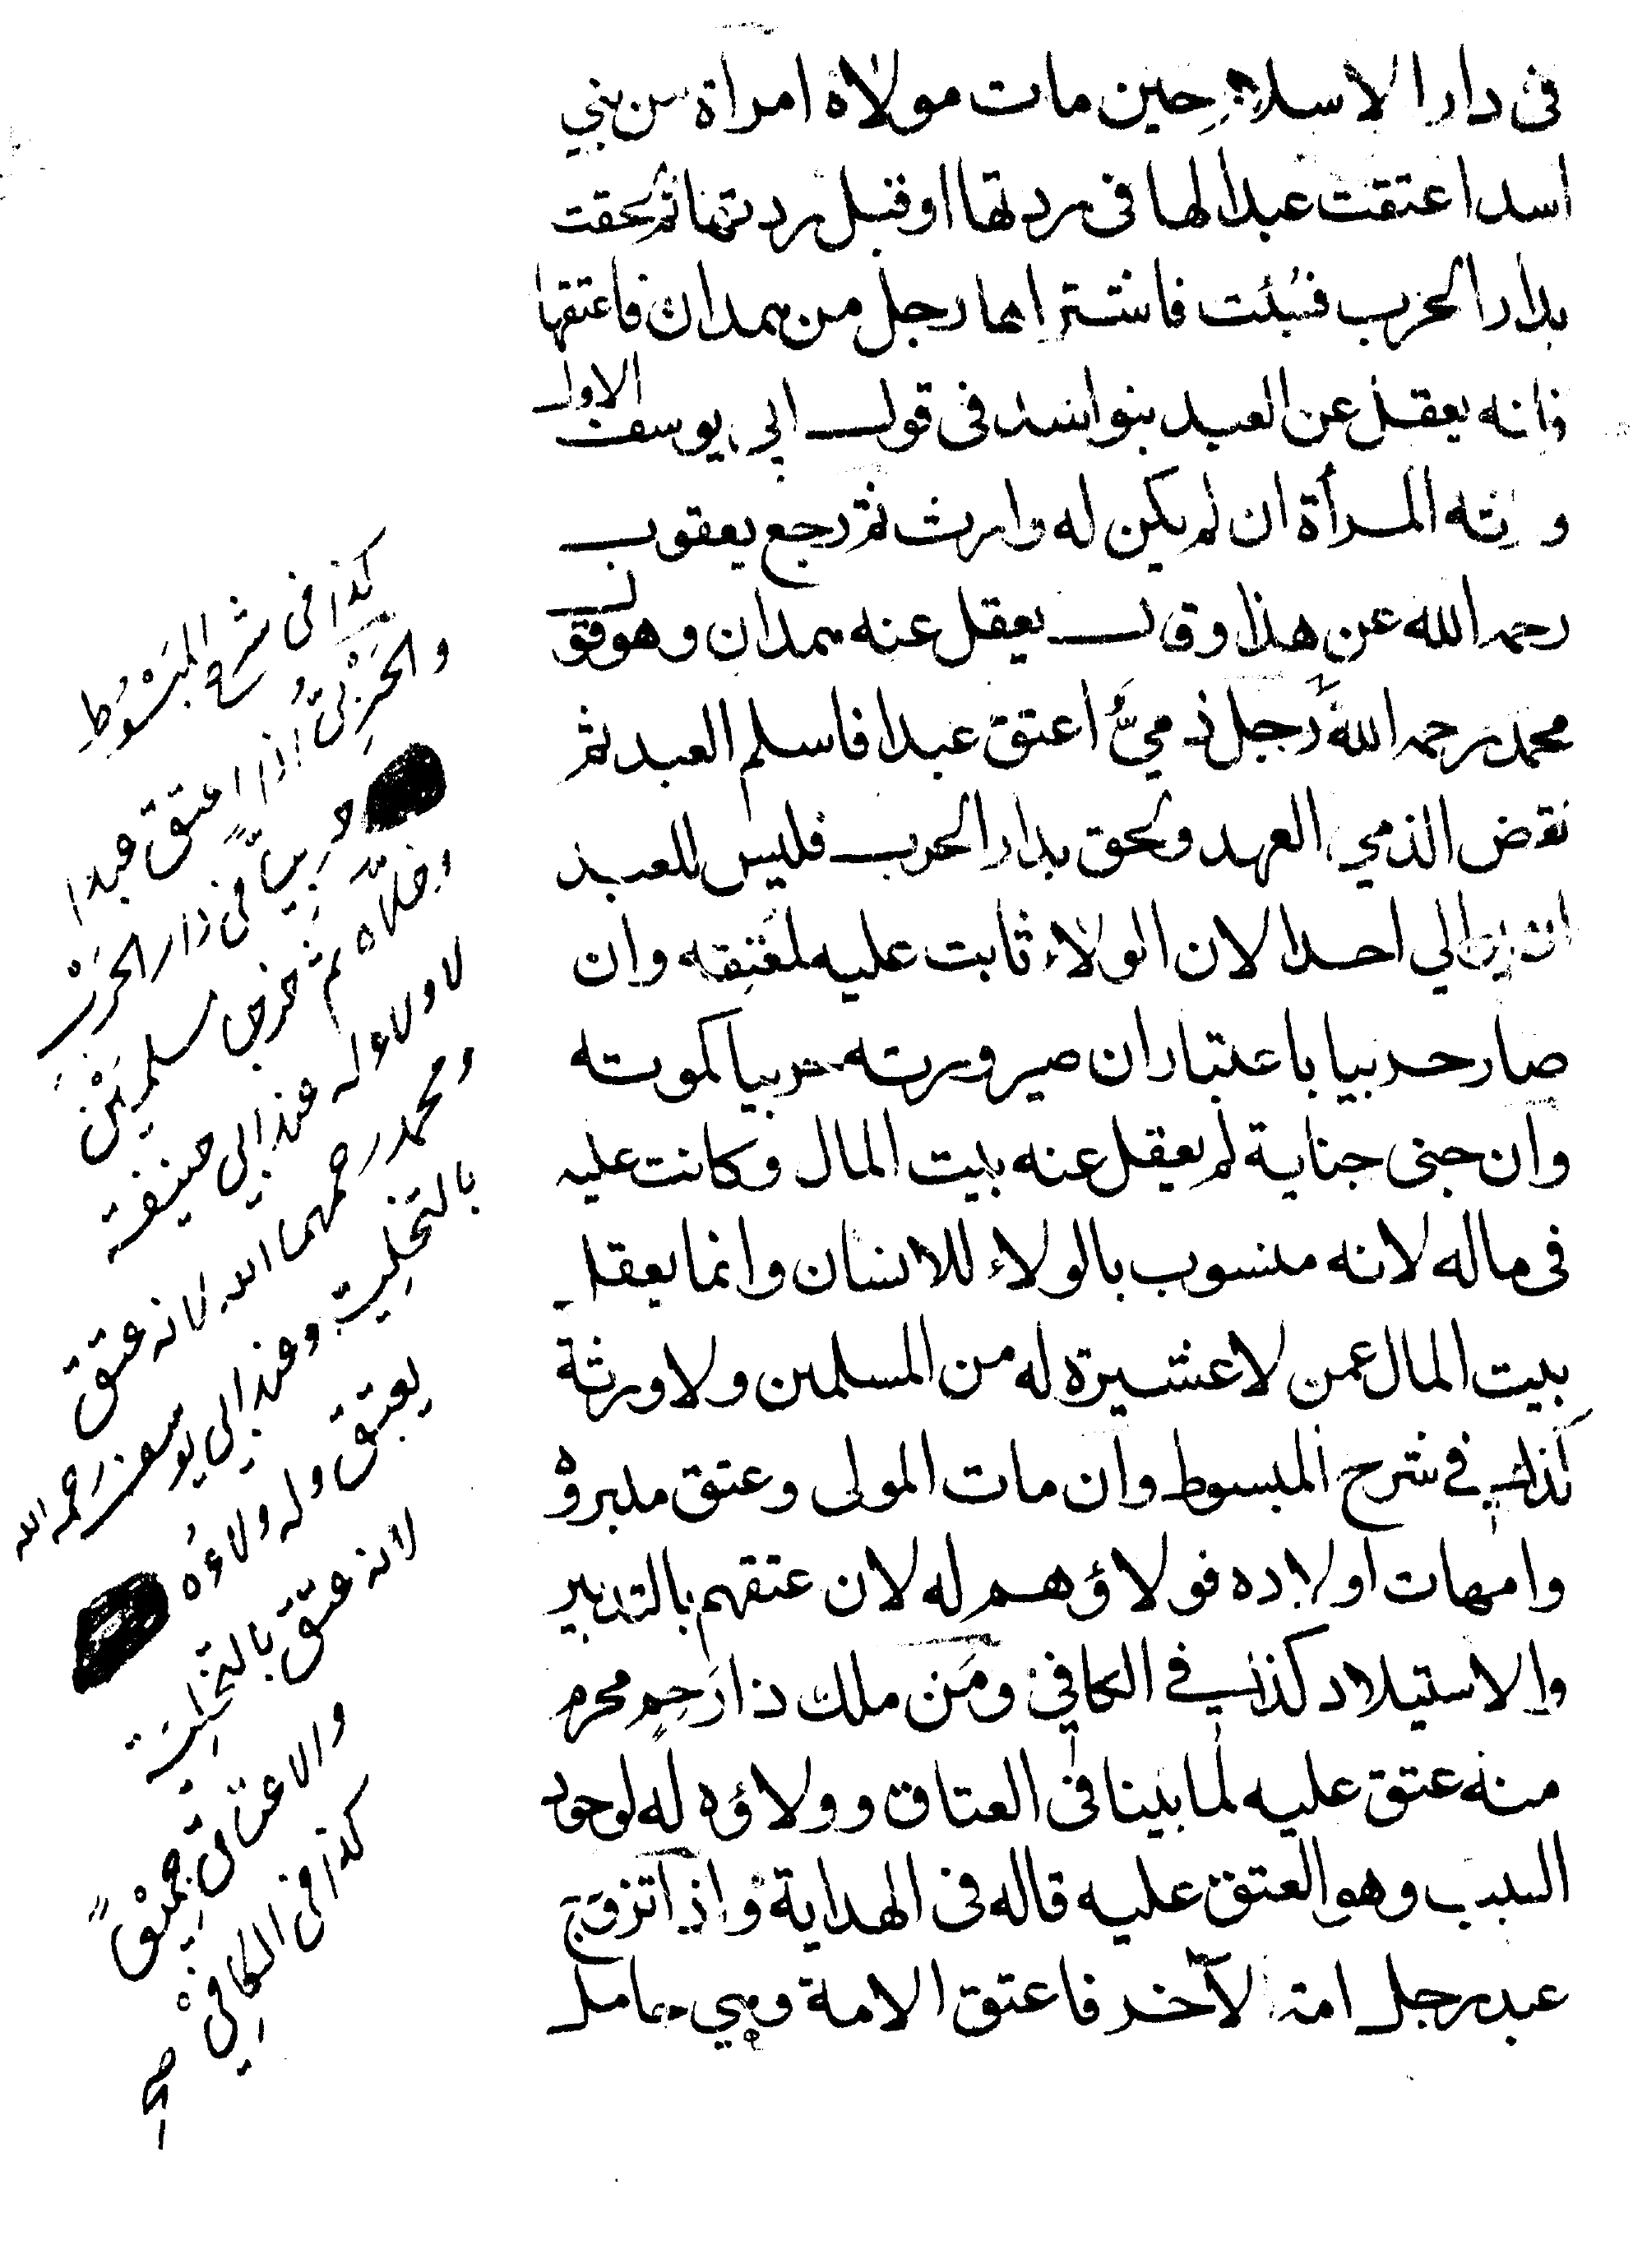 في دار الاسلام حين مات مولاه امراة من بني
اسد اعتقت عبدا لها في ردتها او قبل ردتها ثم لحقت
بدار الحرب فسبئت فاشتراها رجل من همدان فاعتقها
فانه يعقل عن العبد بنو اسد في قول ابي يوسف الاول
وترثه المرأة ان لم يكن له وارث ثم رجع يعقوب
رحمه الله عن هذا وقال يعقل عنه همدان وهو قول
محمد رحمه الله رجل ذمي اعتق عبدا فاسلم العبد ثم
نقض الذمي العهد ولحق بدار الحرب فليس للعبد
ان يوالي احدا لان الولاء ثابت عليه لمعتقه وان
صار حربيا باعتبار ان صيرورته حربيا كموته
وان جنى جناية لم يعقل عنه بيت المال وكانت عليه
في ماله لانه منسوب بالولاء للانسان وانما يعقل
بيت المال عمن لا عشيرة له من المسلمين ولا ورثة
كذا في شرح المبسوط وان مات المولى وعتق مدبروه
وامهات اولاده فولاؤهم له لان عتقهم بالتدبير
والاستيلاد كذا في الكافي ومن ملك ذا رحم محرم
منه عتق عليه لما بينا في العتاق وولاؤه له لوجود
السبب وهو العتق عليه قاله في الهداية واذا تزوج
عبد رجل امة لآخر فاعتق الامة وهي حامل
كذا في شرح المبسوط
والحربي اذا اعتق عبدا
حربيا في دار الحرب
وخلاه ثم خرجا مسلمين
لا ولاء له عند ابي حنيفة
ومحمد رحمهما الله لانه عتق
بالتخلية وعند ابي يوسف رحمه الله
يعتق وله ولاءه
لانه عتق بالتخلية
والاعتاق جميعا
كذا في الكافي
صح